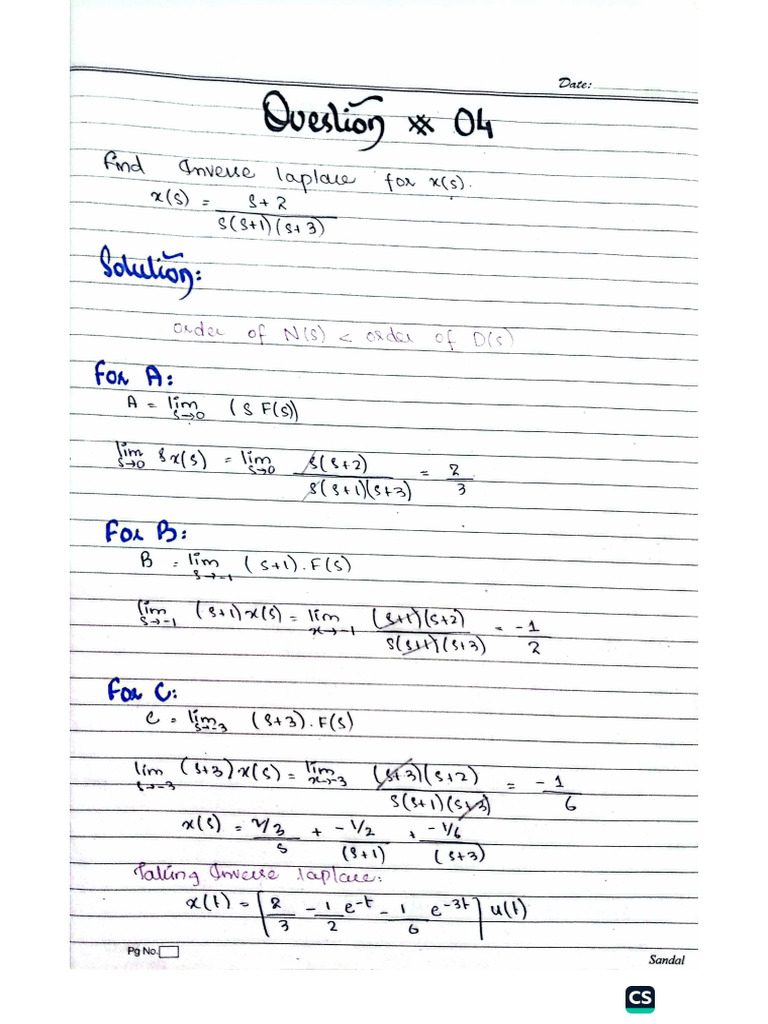 Date:
Question # 04
Find Inverse laplace for x(s).
x(s) = s+2 / s(s+1)(s+3)
Solution:
order of N(s) < order of D(s)
For A:
A = lim s→0 (s F(s))
lim s→0 s x(s) = lim s→0 s(s+2) / s(s+1)(s+3) = 2/3
For B:
B = lim s→-1 (s+1).F(s)
lim s→-1 (s+1)x(s) = lim x→-1 (s+1)(s+2) / s(s+1)(s+3) = -1/2
For C:
C = lim s→-3 (s+3).F(s)
lim s→-3 (s+3)x(s) = lim x→-3 (s+3)(s+2) / s(s+1)(s+3) = -1/6
x(s) = 2/3 / s + -1/2 / (s+1) + -1/6 / (s+3)
Taking Inverse laplace:
x(t) = [2/3 - 1/2 e^-t - 1/6 e^-3t] u(t)
Pg No.
Sandal
CS